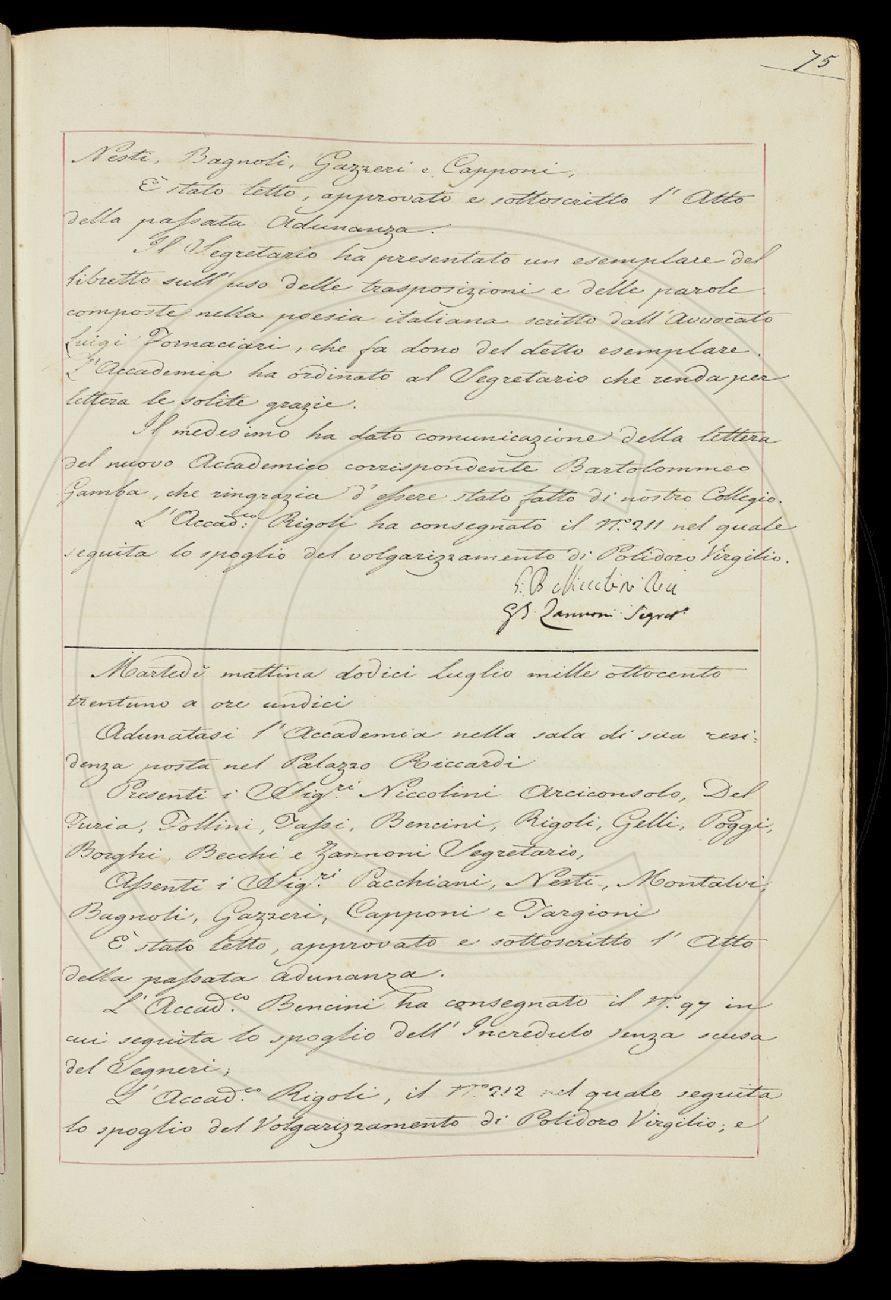 75
Nesti, Bagnoli, Gazzeri e Capponi.
È stato letto, approvato e sottoscritto l'Atto
della passata Adunanza.
Il Segretario ha presentato un esemplare del
libretto sull'uso delle trasposizioni e delle parole
composte nella poesia italiana scritto dall'Avvocato
Luigi Fornaciari, che fa dono del detto esemplare.
L'Accademia ha ordinato al Segretario che renda per
lettera le solite grazie.
Il medesimo ha dato comunicazione della lettera
del nuovo Accademico corrispondente Bartolommeo
Gamba, che ringrazia d'essere stato fatto di nostro Collegio.
L'Accad.co Rigoli ha consegnato il N.o 211 nel quale
seguita lo spoglio del volgarizzamento di Polidoro Virgilio.
G. B. Niccolini
G B Zannoni Segret.o
Martedì mattina dodici Luglio mille ottocento
trentuno a ore undici
Adunatasi l'Accademia nella sala di sua resi:
denza posta nel Palazzo Riccardi
Presenti i Sig.ri Niccolini Arciconsolo, Del
Furia, Follini, Tassi, Bencini, Rigoli, Gelli, Poggi,
Borghi, Becchi e Zannoni Segretario,
Assenti i Sig.ri Pacchiani, Nesti, Montalvi,
Bagnoli, Gazzeri, Capponi e Targioni
È stato letto, approvato e sottoscritto l'Atto
della passata adunanza.
L'Accad.co Bencini ha consegnato il N.o 97 in
cui seguita lo spoglio dell'Incredulo senza scusa
del Segneri;
L'Accad.co Rigoli, il N.ro 212 nel quale seguita
lo spoglio del Volgarizzamento di Polidoro Virgilio; e